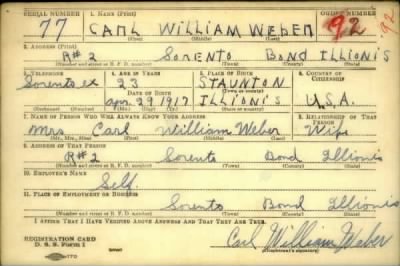 SERIAL NUMBER 1. NAME (Print) ORDER NUMBER
77 CARL WILLIAM WEBER 92 192
(First) (Middle) (Last)
2. ADDRESS (Print)
R#2 SORENTO BOND ILLIONIS
(Number and street or R. F. D. number) (Town) (County) (State)
3. TELEPHONE 4. AGE IN YEARS 5. PLACE OF BIRTH 6. COUNTRY OF CITIZENSHIP
Sorento ex 23 STAUNTON
DATE OF BIRTH (Town or county)
Apr. 29 1917 ILLIONIS U.S.A.
(Exchange) (Number) (Mo.) (Day) (Yr.) (State or country)
7. NAME OF PERSON WHO WILL ALWAYS KNOW YOUR ADDRESS 8. RELATIONSHIP OF THAT PERSON
Mrs. Carl William Weber Wife
(Mr., Mrs., Miss) (First) (Middle) (Last)
9. ADDRESS OF THAT PERSON
R#2 Sorento Bond Illionis
(Number and street or R. F. D. number) (Town) (County) (State)
10. EMPLOYER'S NAME
Self.
11. PLACE OF EMPLOYMENT OR BUSINESS
Sorento Bond Illionis
(Number and street or R. F. D. number) (Town) (County) (State)
I AFFIRM THAT I HAVE VERIFIED ABOVE ANSWERS AND THAT THEY ARE TRUE.
REGISTRATION CARD
D. S. S. FORM 1 Carl William Weber
(Registrant's signature)